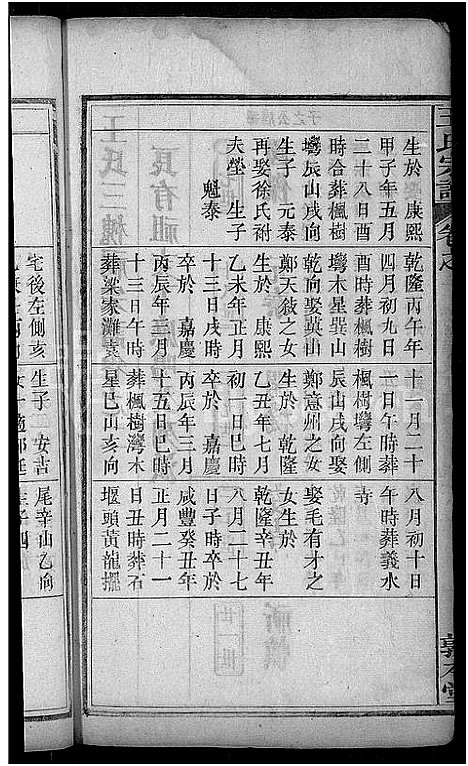 王氏宗譜
卷之
生於 康熙
甲子年五月
二十八日酉
時合葬楓樹
塆辰山戌向
生子 元泰
再娶徐氏祔
夫塋 生子
魁泰
乾隆丙午年
四月初九日
酉時葬楓樹
塆木星巽山
乾向娶英山
鄭天敘之女
生於 康熙
乙未年正月
十三日戌時
卒於 嘉慶
丙辰年三月
十三日午時
葬梁家灘袁
十一月二十
一日午時葬
楓樹塆左側
辰山戌向娶
鄭意州之女
生於 乾隆
乙丑年七月
初一日巳時
卒於 嘉慶
丙辰年三月
十五日巳時
葬楓樹灣木
星巳山亥向
八月初十日
午時葬義水
寺
娶毛有才之
女生於
乾隆辛丑年
八月二十七
日子時卒於
咸豐癸丑年
正月二十一
日丑時葬石
堰頭黃龍擺
宅後左側亥
生子 安吉
尾辛山乙向